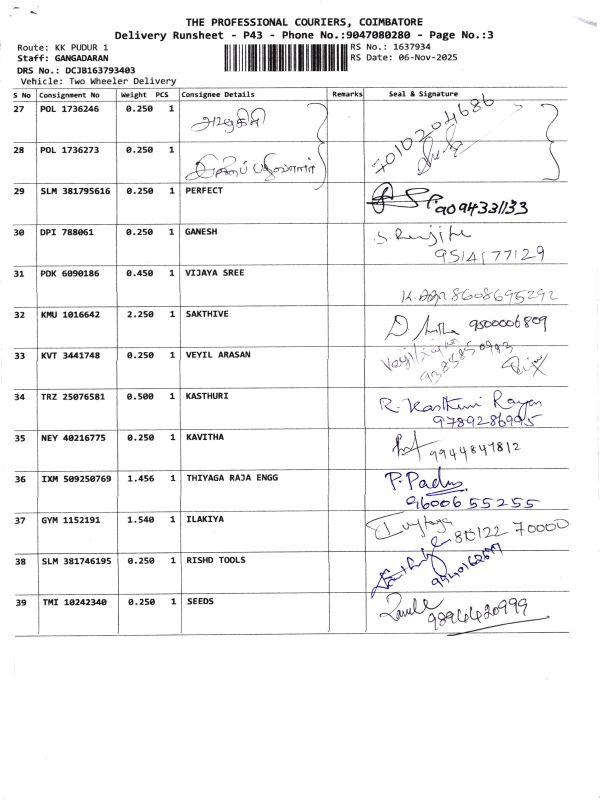 THE PROFESSIONAL COURIERS, COIMBATORE
Delivery Runsheet - P43 - Phone No.:9047080280 - Page No.:3
Route: KK PUDUR 1 RS No.: 1637934
Staff: GANGADARAN RS Date: 06-Nov-2025
DRS No.: DCJB163793403
Vehicle: Two Wheeler Delivery
S No Consignment No Weight PCS Consignee Details Remarks Seal & Signature
27 POL 1736246 0.250 1 7010204686
28 POL 1736273 0.250 1
29 SLM 381795616 0.250 1 PERFECT 9094331133
30 DPI 788061 0.250 1 GANESH
9514177129
31 PDK 6090186 0.450 1 VIJAYA SREE
8608695292
32 KMU 1016642 2.250 1 SAKTHIVE 9500006809
33 KVT 3441748 0.250 1 VEYIL ARASAN
34 TRZ 25076581 0.500 1 KASTHURI R. Kasthuri Rayan
9789286995
35 NEY 40216775 0.250 1 KAVITHA 9944847812
36 IXM 509250769 1.456 1 THIYAGA RAJA ENGG P. Padma
9600655255
37 GYM 1152191 1.540 1 ILAKIYA 80122 70000
38 SLM 381746195 0.250 1 RISHD TOOLS
39 TMI 10242340 0.250 1 SEEDS 9894420999